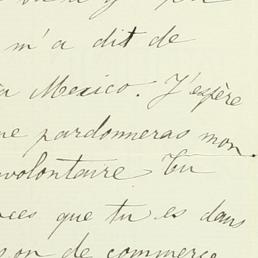 m'a dit de
a Mexico. J'espère
ue pardonneras mon
volontaire Tu
ces que tu es dans
son de commerce